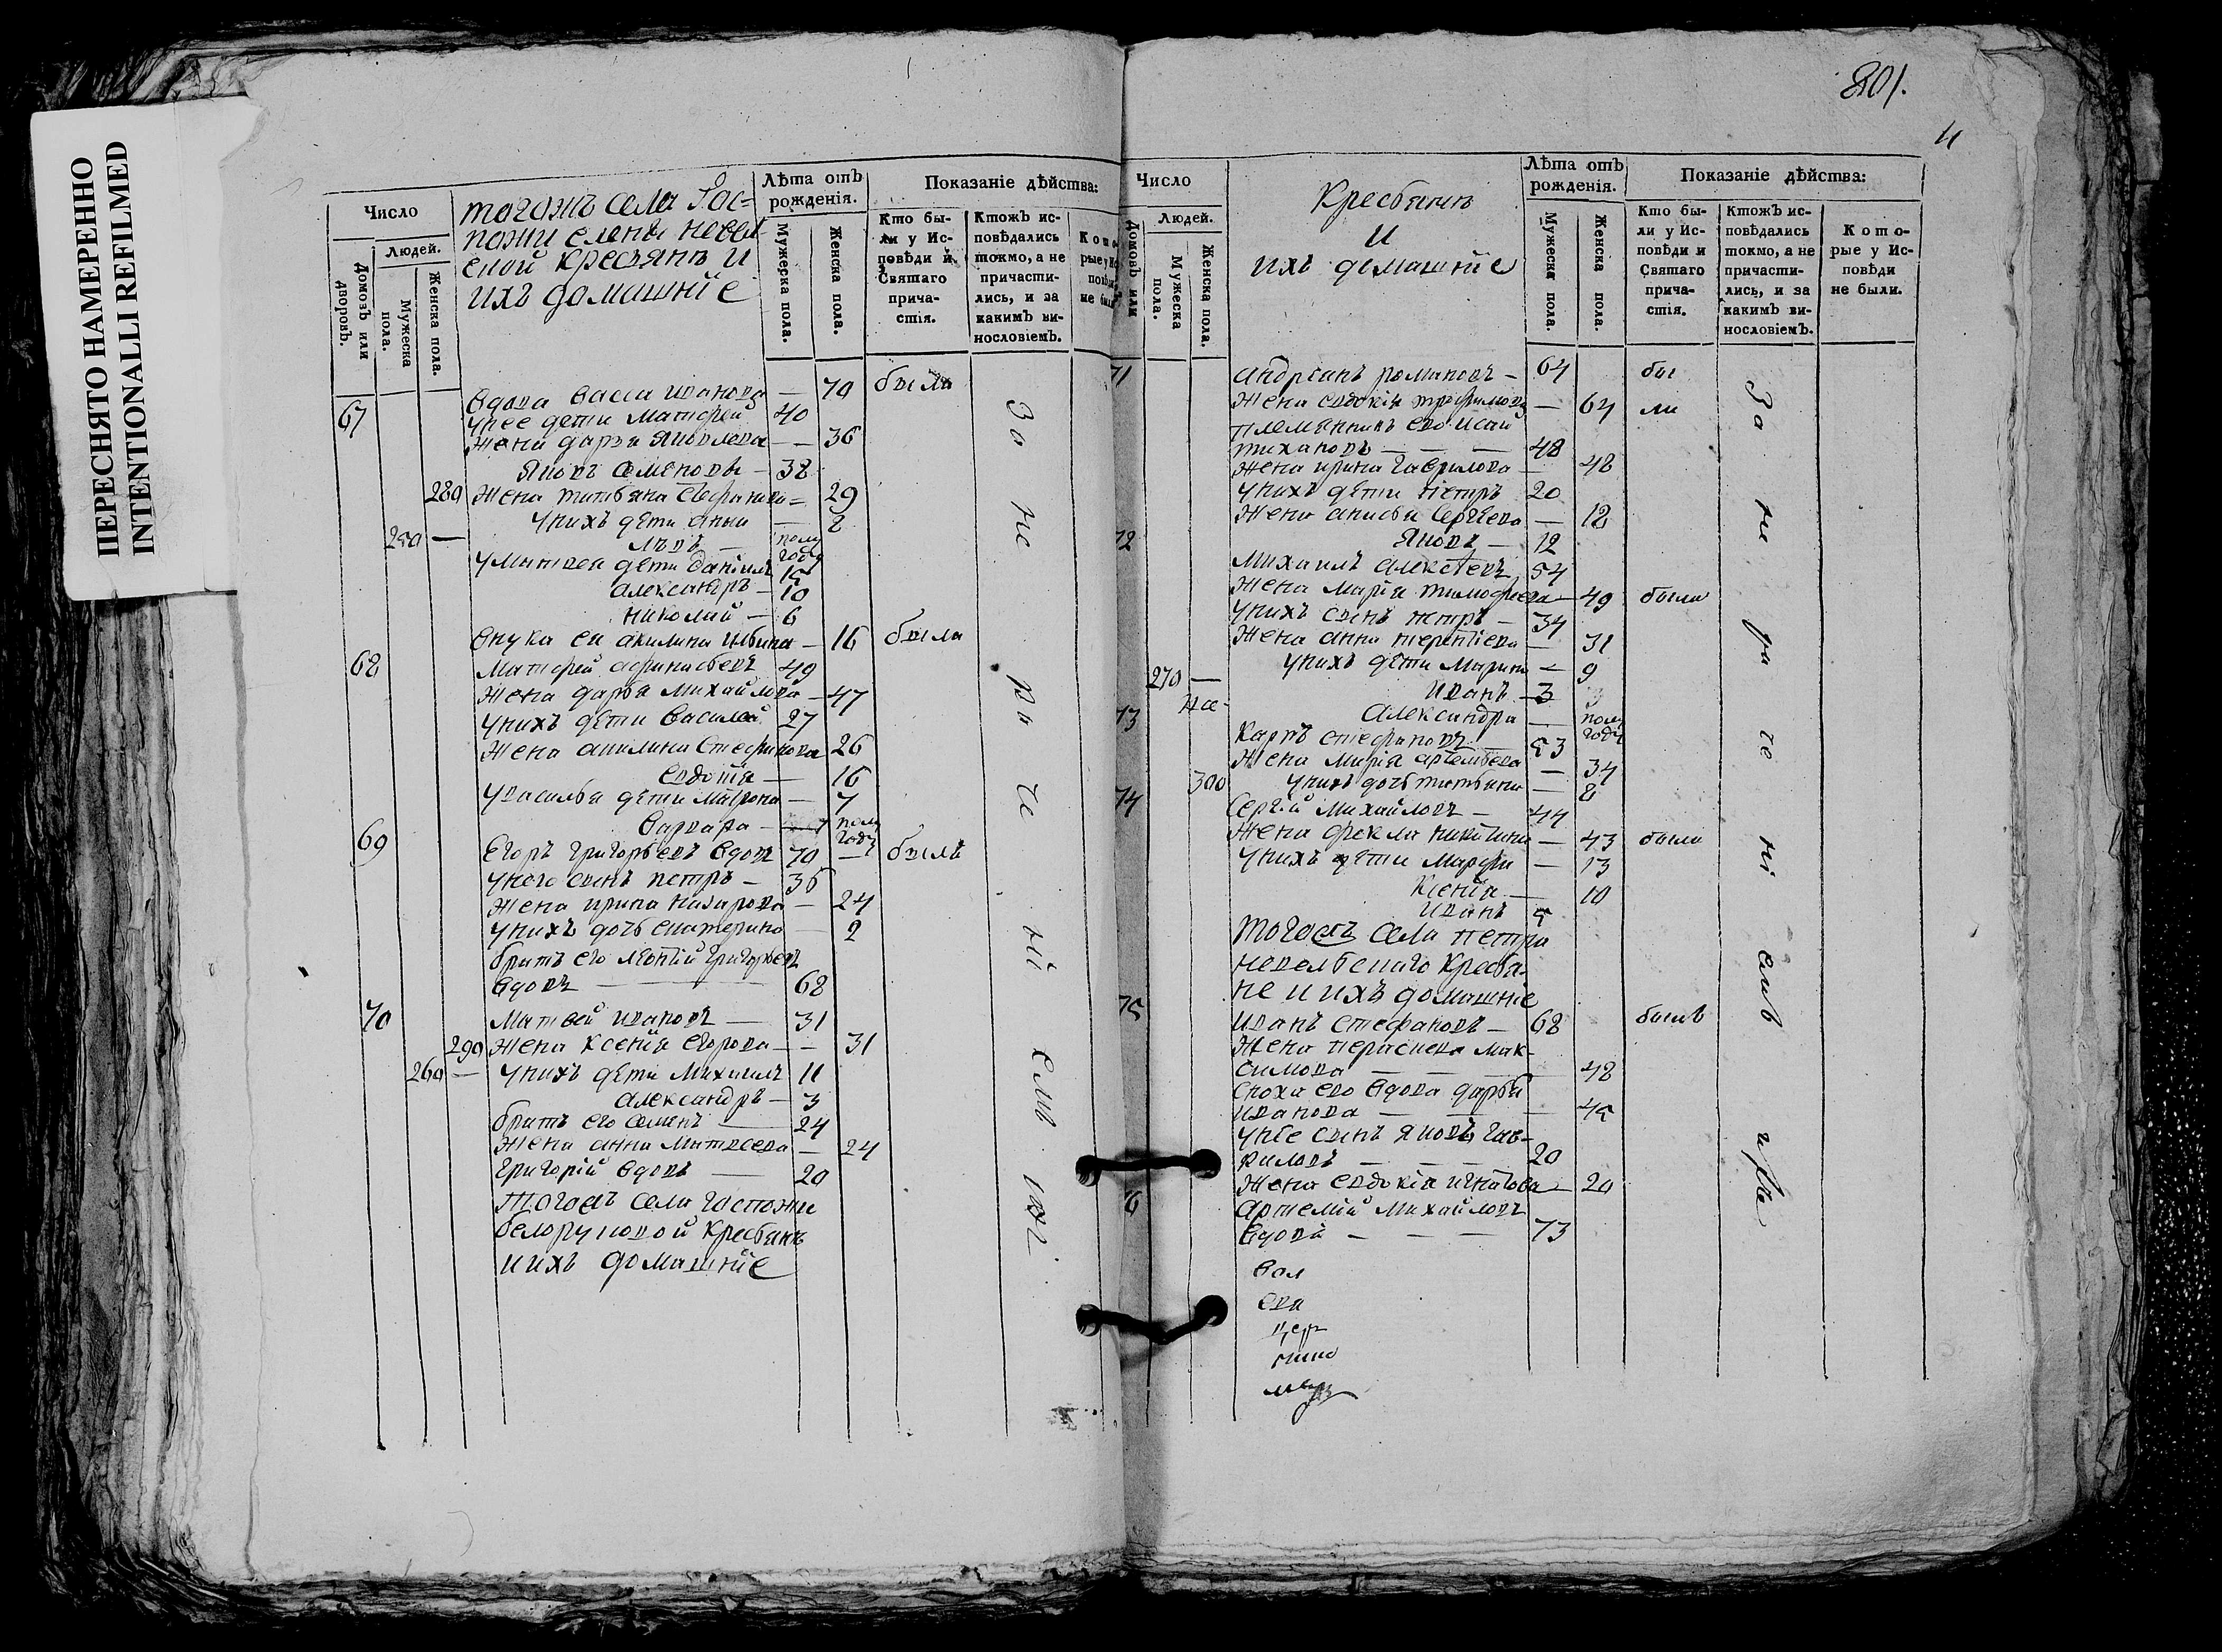 ПЕРЕСНЯТО НАМЕРЕННО
INTENTIONALLI REFILMED
801.
11
Число
Людей.
Домовъ или дворовъ.
Мужеска пола.
Женска пола.
тогожъ села Гос-
пожи елены невель
ской кресьянъ и
ихъ домашніе
Лѣта отъ рожденія.
Мужеска пола.
Женска пола.
Показаніе дѣйства:
Кто бы-
ли у Ис-
повѣди и
Святаго
прича-
стія.
Ктожъ ис-
повѣдались
токмо, а не
причасти-
лись, и за
какимъ ви-
нословіемъ.
67 Вдова васса иванова — 70 была
унее дети матфей 40
Жена дарья яковлева — 36
яковъ семеновъ — 38
280 Жена татьяна — 29
унихъ дети — 2
250 — полу году
дети даніилъ 15
александръ — 10
николай — 6
внука ея акилина — 16 была
68 Матфей афанасьевъ 49
Жена дарья михайлова — 47
унихъ дети василей 27
Жена акилина стефанова 26
евдокія — 16
увасилья дети — 7
варвара — полу году
69 Егоръ григорьевъ вдовъ 70 — былъ
унего сынъ петръ — 36
Жена ирина назарова — 24
унихъ дочь екатерина — 2
братъ его григорьевъ
вдовъ — 68
70 Матвей ивановъ — 31
290 Жена ксенія егорова — 31
260 — унихъ дети михаилъ 11
александръ — 3
братъ его семенъ — 24
Жена анна матвеева — 24
григорій вдовъ — 20
тогожъ села госпожи
белоруковой кресьянъ
и ихъ домашніе
За не ра че ні емъ
Число
Людей.
Домовъ или
Мужеска пола.
Женска пола.
Кресьянъ
и
ихъ домашніе
Лѣта отъ рожденія.
Мужеска пола.
Женска пола.
Показаніе дѣйства:
Кто бы-
ли у Ис-
повѣди и
Святаго
прича-
стія.
Ктожъ ис-
повѣдались
токмо, а не
причасти-
лись, и за
какимъ ви-
нословіемъ.
Кото-
рые у Ис-
повѣди
не были.
71 андреанъ романовъ — 64 бы
Жена евдокія трофимова — 64 ли
племянникъ его исай
тихановъ — 48
Жена ирина гаврилова — 48
унихъ дети петръ 20
Жена анисья сергеева — 18
яковъ — 12
72 михаилъ алексѣевъ 54
Жена марія тимофеева — 49 были
унихъ сынъ петръ — 34
Жена анна терентіева — 31
унихъ дети марина — 9
270 — иванъ — 3
александра — полу году
73 Карпъ стефановъ — 53
Жена марія артемьева — 34
300 унихъ дочь татьяна — 8
74 Сергій михайловъ — 44
Жена фекла никитина — 43 были
унихъ дети марфа — 13
Ксенія — 10
иванъ 5
тогожъ села петра
невельскаго кресья-
не и ихъ домашніе
75 иванъ стефановъ — 68 былъ
Жена параскева мак-
симова — 48
сноха его вдова дарья
иванова — 45
унее сынъ яковъ гав-
риловъ — 20
Жена евдокія игнатова — 20
76 артемій михайловъ
вдовъ — 73
За не ра че ні емъ